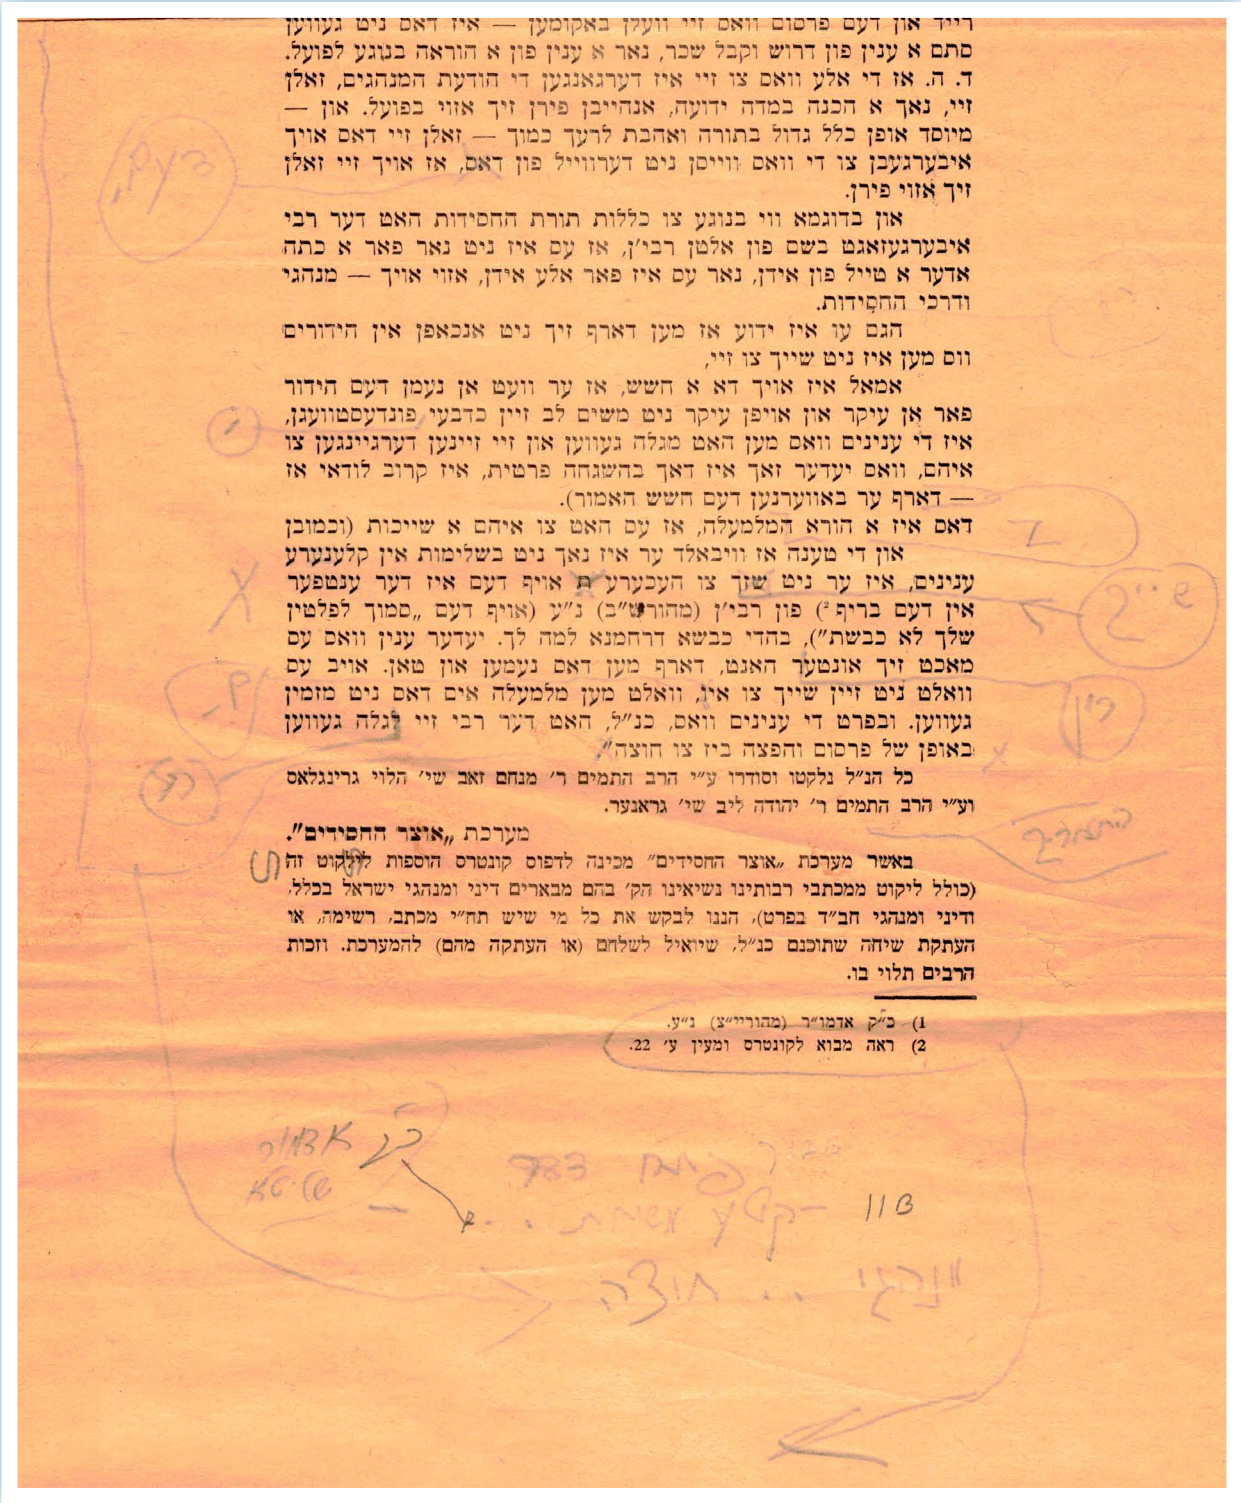 רייד און דעם פרסום וואס זיי וועלן באקומען — איז דאס ניט געווען
סתם א ענין פון דרוש וקבל שכר, נאר א ענין פון א הוראה בנוגע לפועל.
ד. ה. אז די אלע וואס צו זיי איז דערגאנגען די הודעת המנהגים, זאלן
זיי, נאך א הכנה במדה ידועה, אנהייבן פירן זיך אזוי בפועל. און —
מיוסד אופן כלל גדול בתורה ואהבת לרעך כמוך — זאלן זיי דאס אויך
איבערגעבן צו די וואס ווייסן ניט דערווייל פון דאס, אז אויך זיי זאלן
זיך אזוי פירן.
דעם,
און בדוגמא ווי בנוגע צו כללות תורת החסידות האט דער רבי
איבערגעזאגט בשם פון אלטן רבי'ן, אז עס איז ניט נאר פאר א כתה
אדער א טייל פון אידן, נאר עס איז פאר אלע אידן, אזוי אויך — מנהגי
ודרכי החסידות.
הגם עו איז ידוע אז מען דארף זיך ניט אנכאפן אין הידורים
ווס מען איז ניט שייך צו זיי,
אמאל איז אויך דא א חשש, אז ער וועט אן נעמן דעם הידור
פאר אן עיקר און אויפן עיקר ניט משים לב זיין כדבעי פונדעסטוועגן,
איז די ענינים וואס מען האט מגלה געווען און זיי זיינען דערגיינגען צו
איהם, וואס יעדער זאך איז דאך בהשגחה פרטית, איז קרוב לודאי אז
— דארף ער באווערנען דעם חשש האמור).
דאס איז א הורא המלמעלה, אז עס האט צו איהם א שייכות (וכמובן
און די טענה אז וויבאלד ער איז נאך ניט בשלימות אין קלענערע
ענינים, איז ער ניט שזך צו העכערע ת אויף דעם איז דער ענטפער
שייך
אין דעם בריף ²) פון רבי'ן (מהורש"ב) נ"ע (אויף דעם „סמוך לפלטין
שלך לא כבשת"), בהדי כבשא דרחמנא למה לך. יעדער ענין וואס עס
מאכט זיך אונטער האנט, דארף מען דאס נעמען און טאן. אויב עס
וואלט ניט זיין שייך צו אין, וואלט מען מלמעלה אים דאס ניט מזמין
געווען. ובפרט די ענינים וואס, כנ"ל, האט דער רבי זיי לגלה געווען
באופן של פרסום והפצה ביז צו חוצה".
כל הנ"ל נלקטו וסודרו ע"י הרב התמים ר' מנחם זאב שי' הלוי גרינגלאס
וע"י הרב התמים ר' יהודה ליב שי' גראנער.
מערכת „אוצר החסידים".
באשר מערכת „אוצר החסידים" מכינה לדפוס קונטרס הוספות לילקוט זה
(כולל ליקוט ממכתבי רבותינו נשיאינו הק' בהם מבארים דיני ומנהגי ישראל בכלל,
ודיני ומנהגי חב"ד בפרט), הננו לבקש את כל מי שיש תח"י מכתב, רשימה, או
העתקת שיחה שתוכנם כנ"ל, שיואיל לשלחם (או העתקה מהם) להמערכת. וזכות
הרבים תלוי בו.
1) כ"ק אדמו"ר (מהוריי"צ) נ"ע.
2) ראה מבוא לקונטרס ומעין ע' 22.
כ"ק אדמור
שליטא
מנהגי .. חוצה